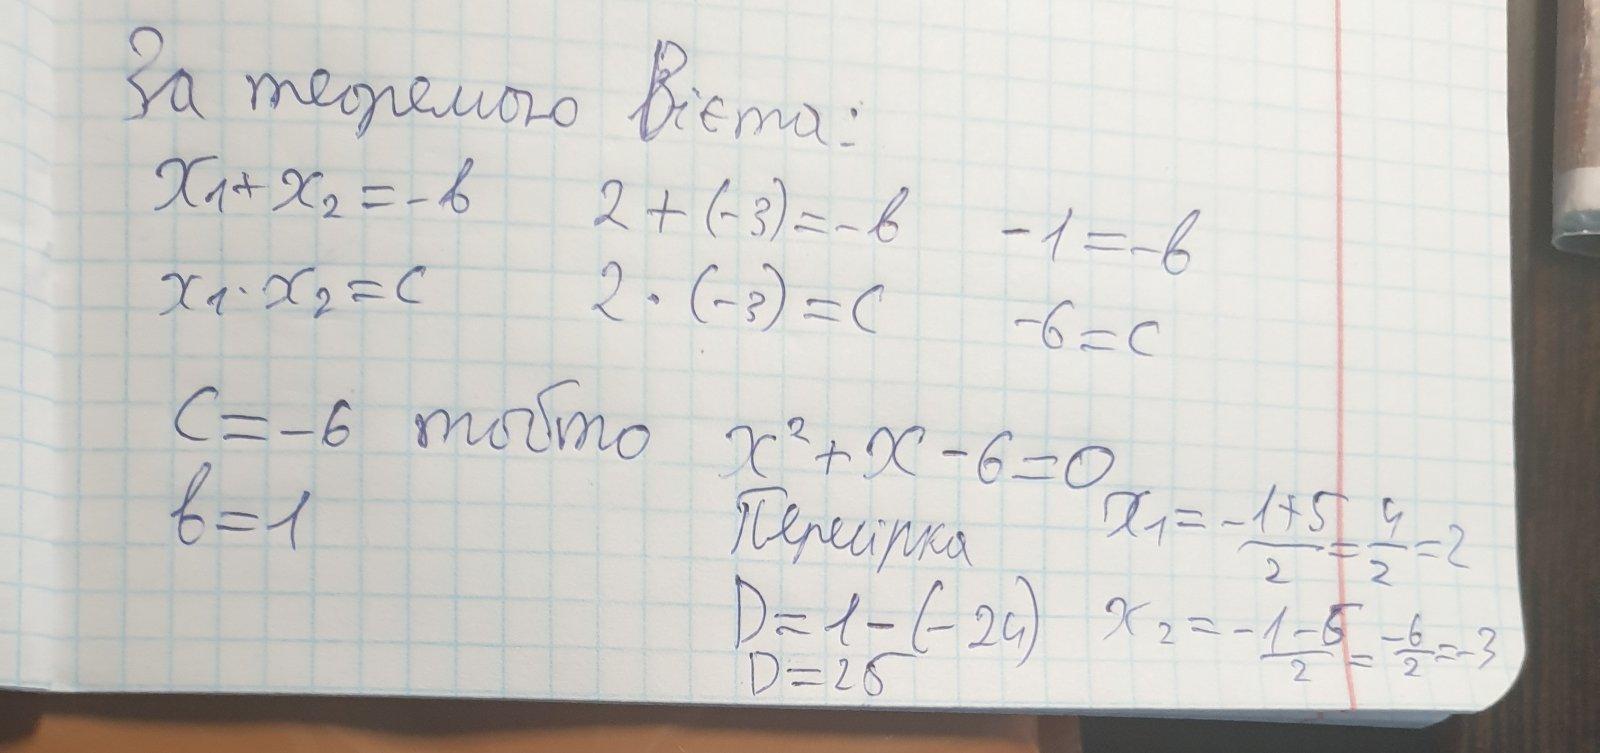 За теоремою Вієта:
x₁+x₂=-b 2+(-3)=-b -1=-b
x₁·x₂=c 2·(-3)=c -6=c
c=-6 тобто x²+x-6=0
b=1 Перевірка x₁=-1+5/2=4/2=2
D=1-(-24) x₂=-1-5/2=-6/2=-3
D=25